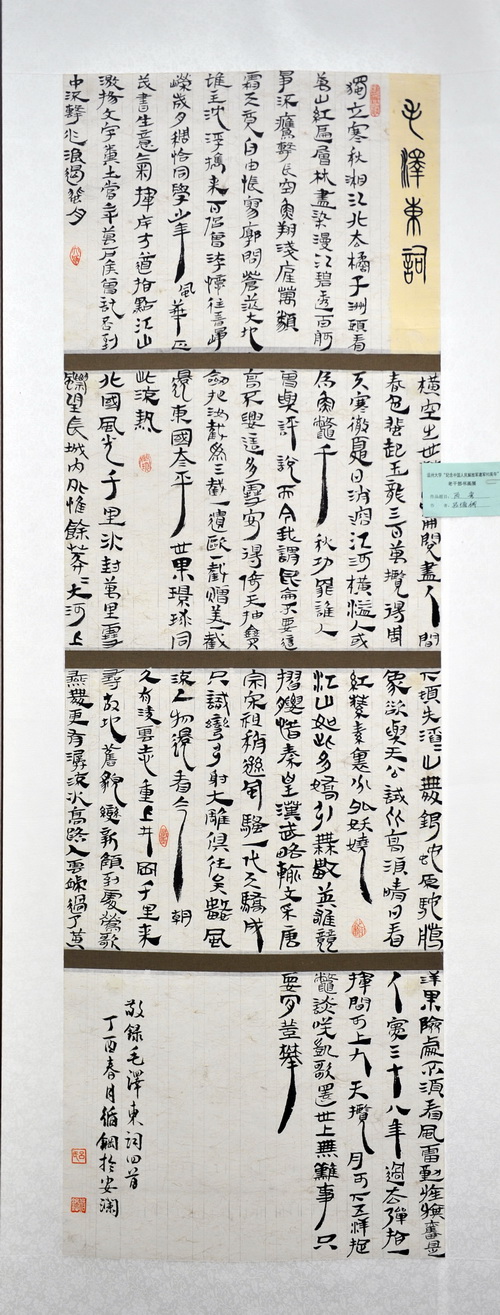 毛澤東詞
獨立寒秋湘江北去橘子洲頭看
萬山紅遍層林盡染漫江碧透百舸
爭流鷹擊長空魚翔淺底萬類
霜天競自由悵寥廓問蒼茫大地
誰主沈浮攜來百侶曾遊憶往昔崢
嶸歲月稠恰同學少年風華正
茂書生意氣揮斥方遒指點江山
激揚文字糞土當年萬戶侯曾記否到
中流擊水浪遏飛舟
橫空出世閱盡人間
春色飛起玉龍三百萬攪得周
天寒徹夏日消溶江河橫溢人或
為魚鱉千秋功罪誰人
曾與評說而今我謂昆侖不要這
高不要這多雪安得倚天抽寶
劍把汝截為三截一遺歐一截贈美一截
還東國太平世界環球同
此涼熱
北國風光千里冰封萬里雪
飄望長城內外惟餘莽莽大河上
下頓失滔滔山舞銀蛇原馳臘
象欲與天公試比高須晴日看
紅裝素裹分外妖嬈
江山如此多嬌引無數英雄競
摺腰惜秦皇漢武略輸文采唐
宗宋祖稍遜風騷一代天驕成
只識彎弓射大雕俱往矣數風
流人物還看今朝
久有凌雲志重上井岡千里來
尋故地舊貌變新顏到處鶯歌
燕舞更有潺流水高路入雲端過了黃
洋界險處不須看風雷動旌旗奮是
人寰三十八年過去彈指一
揮間可上九天攬月可下五洋捉
鱉談笑凱歌還世上無難事只
要肯登攀
敬錄毛澤東詞四首
丁酉春月循鋼於安瀾